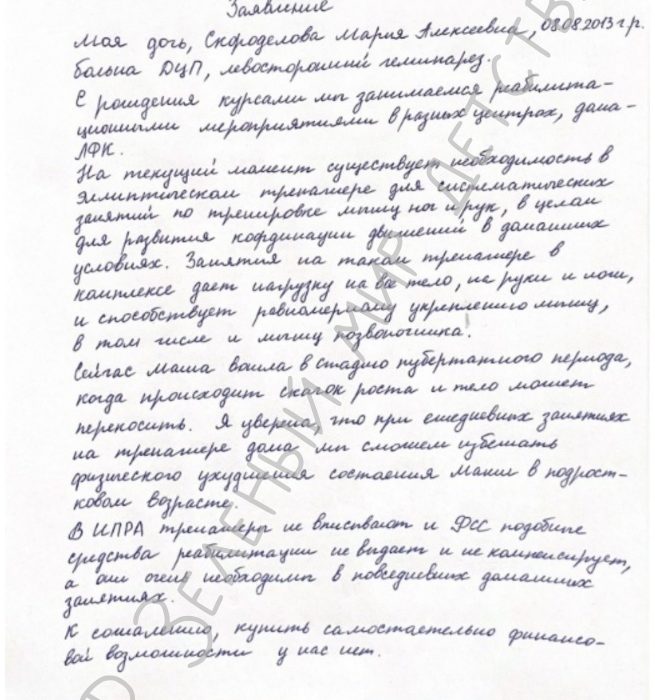 Заявление
Моя дочь, Скороделова Мария Алексеевна, 08.08.2013 г.р.
больна ДЦП, левосторонний гемипарез.
С рождения курсами мы занимаемся реабилита-
ционными мероприятиями в разных центрах, дома-
ЛФК.
На текущий момент существует необходимость в
эллиптическом тренажере для систематических
занятий по тренировке мышц ног и рук, в целом
для развития кординации движений в домашних
условиях. Занятия на таком тренажере в
комплексе дает нагрузку на все тело, на руки и ноги,
и способствует равномерному укреплению мышц,
в том числе и мышц позвоночника.
Сейчас Маша вошла в стадию пубертатного периода,
когда происходит скачок роста и тело может
перекосить. Я уверена, что при ежедневных занятиях
на тренажере дома мы сможем избежать
физического ухудшения состояния Маши в подрост-
ковом возрасте.
В ИПРА тренажеры не вписывают и ФСС подобные
средства реабилитации не выдает и не компенсирует,
а они очень необходимы в повседневных домашних
занятиях.
К сожалению, купить самостоятельно финансо-
вой возможности у нас нет.
ЗЕЛЕНЫЙ МИР ДЕТСТВ